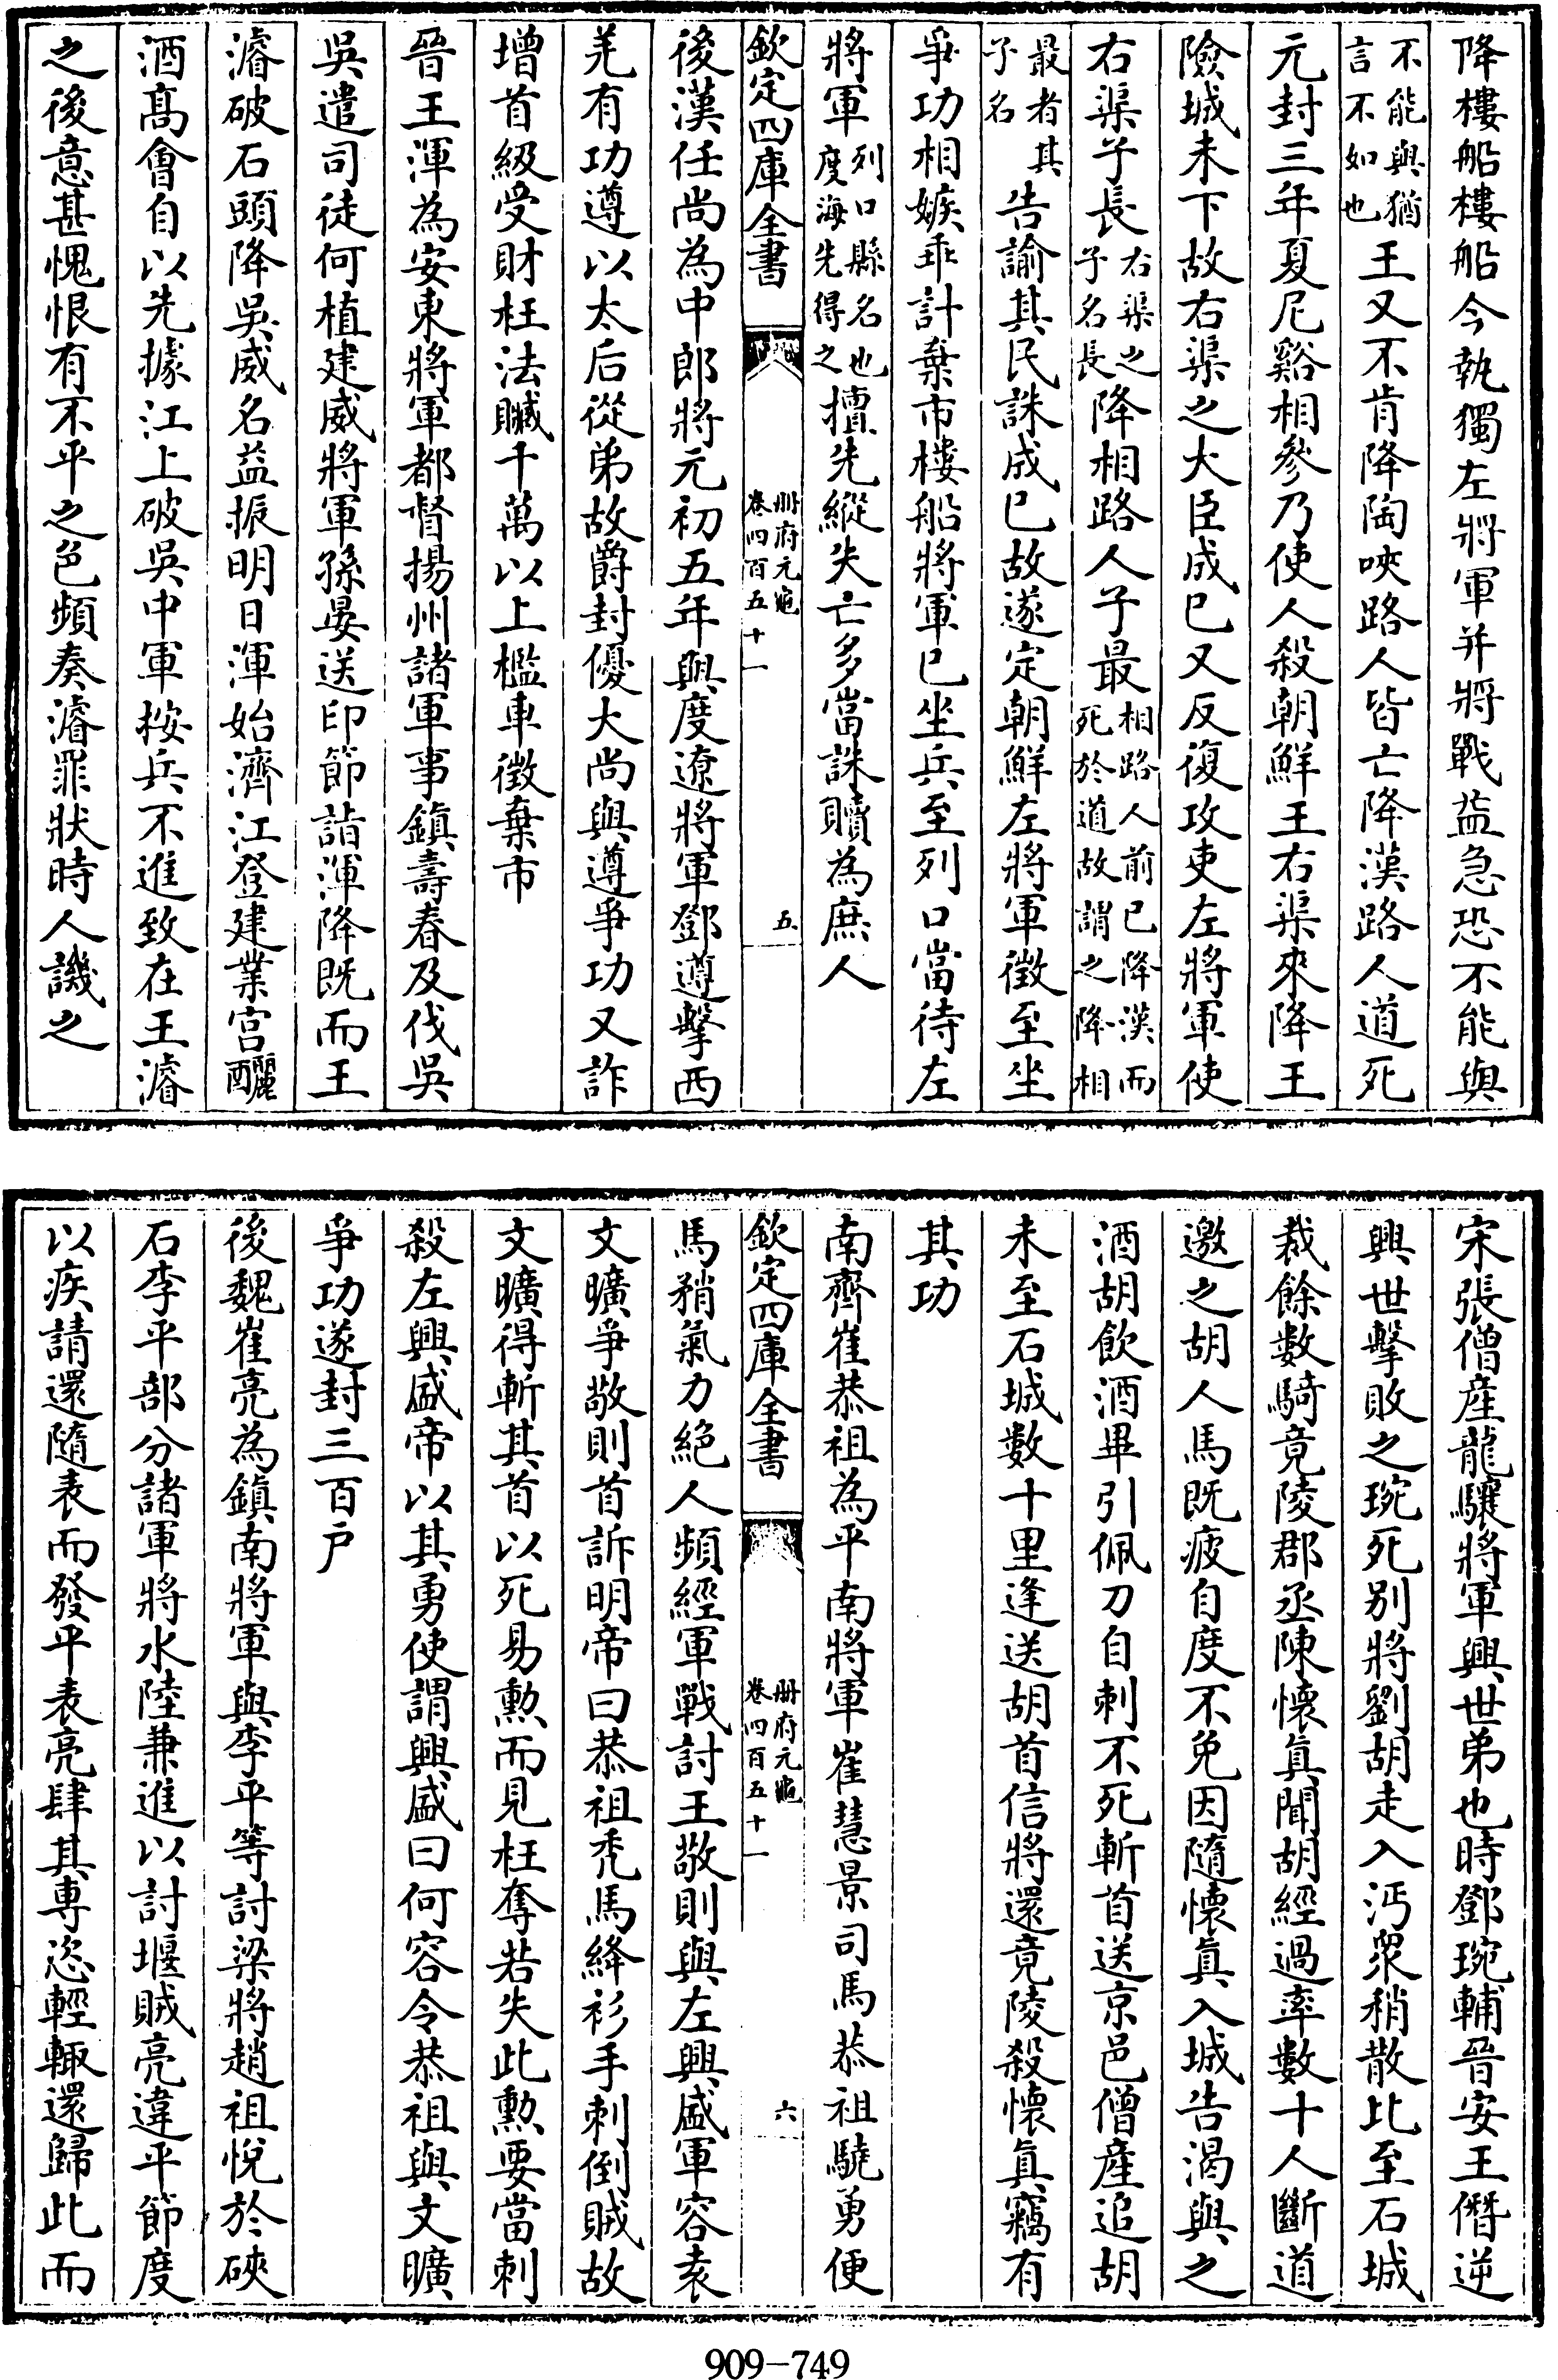 降樓船樓船今執獨左將軍并將戰益急恐不能與
不能與猶言不如也王又不肯降陶唊路人皆亡降漢路人道死
元封三年夏尼谿相參乃使人殺朝鮮王右渠來降王
險城未下故右渠之大臣成巳又反復攻吏左將軍使
右渠子長右渠之子名長降相路人子最相路人前已降漢而死於道故謂之降相
最者其子名告諭其民誅成巳故遂定朝鮮左將軍徵至坐
爭功相嫉乖計棄市樓船將軍已坐兵至列口當待左
將軍列口縣名也度海先得之擅先縱失亡多當誅贖為庶人
欽定四庫全書 冊府元龜 卷四百五十一 五
後漢任尚為中郎將元初五年與度遼將軍鄧遵擊西
羌有功遵以太后從弟故爵封優大尚與遵爭功又詐
增首級受財枉法贓千萬以上檻車徵棄市
晉王渾為安東將軍都督揚州諸軍事鎮壽春及伐吳
吳遣司徒何植建威將軍孫晏送印節詣渾降既而王
濬破石頭降吳威名益振明日渾始濟江登建業宮釃
酒高會自以先據江上破吳中軍桉兵不進致在王濬
之後意甚愧恨有不平之色頻奏濬罪狀時人譏之
宋張僧產龍驤將軍興世弟也時鄧琬輔晉安王僭逆
興世擊敗之琬死别將劉胡走入沔衆稍散比至石城
裁餘數騎竟陵郡丞陳懷真聞胡經過率數十人斷道
邀之胡人馬既疲自度不免因隨懷真入城告渴與之
酒胡飲酒畢引佩刀自刺不死斬首送京邑僧產追胡
未至石城數十里逢送胡首信將還竟陵殺懷真竊有
其功
南齊崔恭祖為平南將軍崔慧景司馬恭祖驍勇便
欽定四庫全書 冊府元龜 卷四百五十一 六
馬矟氣力絶人頻經軍戰討王敬則與左興盛軍容袁
文曠爭敬則首訴明帝曰恭祖禿馬絳衫手刺倒賊故
文曠得斬其首以死易勲而見枉奪若失此勲要當刺
殺左興盛帝以其勇使謂興盛曰何容令恭祖與文曠
爭功遂封三百戶
後魏崔亮為鎮南將軍與李平等討梁將趙祖悅於硤
石李平部分諸軍將水陸兼進以討堰賊亮違平節度
以疾請還隨表而發平表亮肆其專恣輕輙還歸此而
909-749